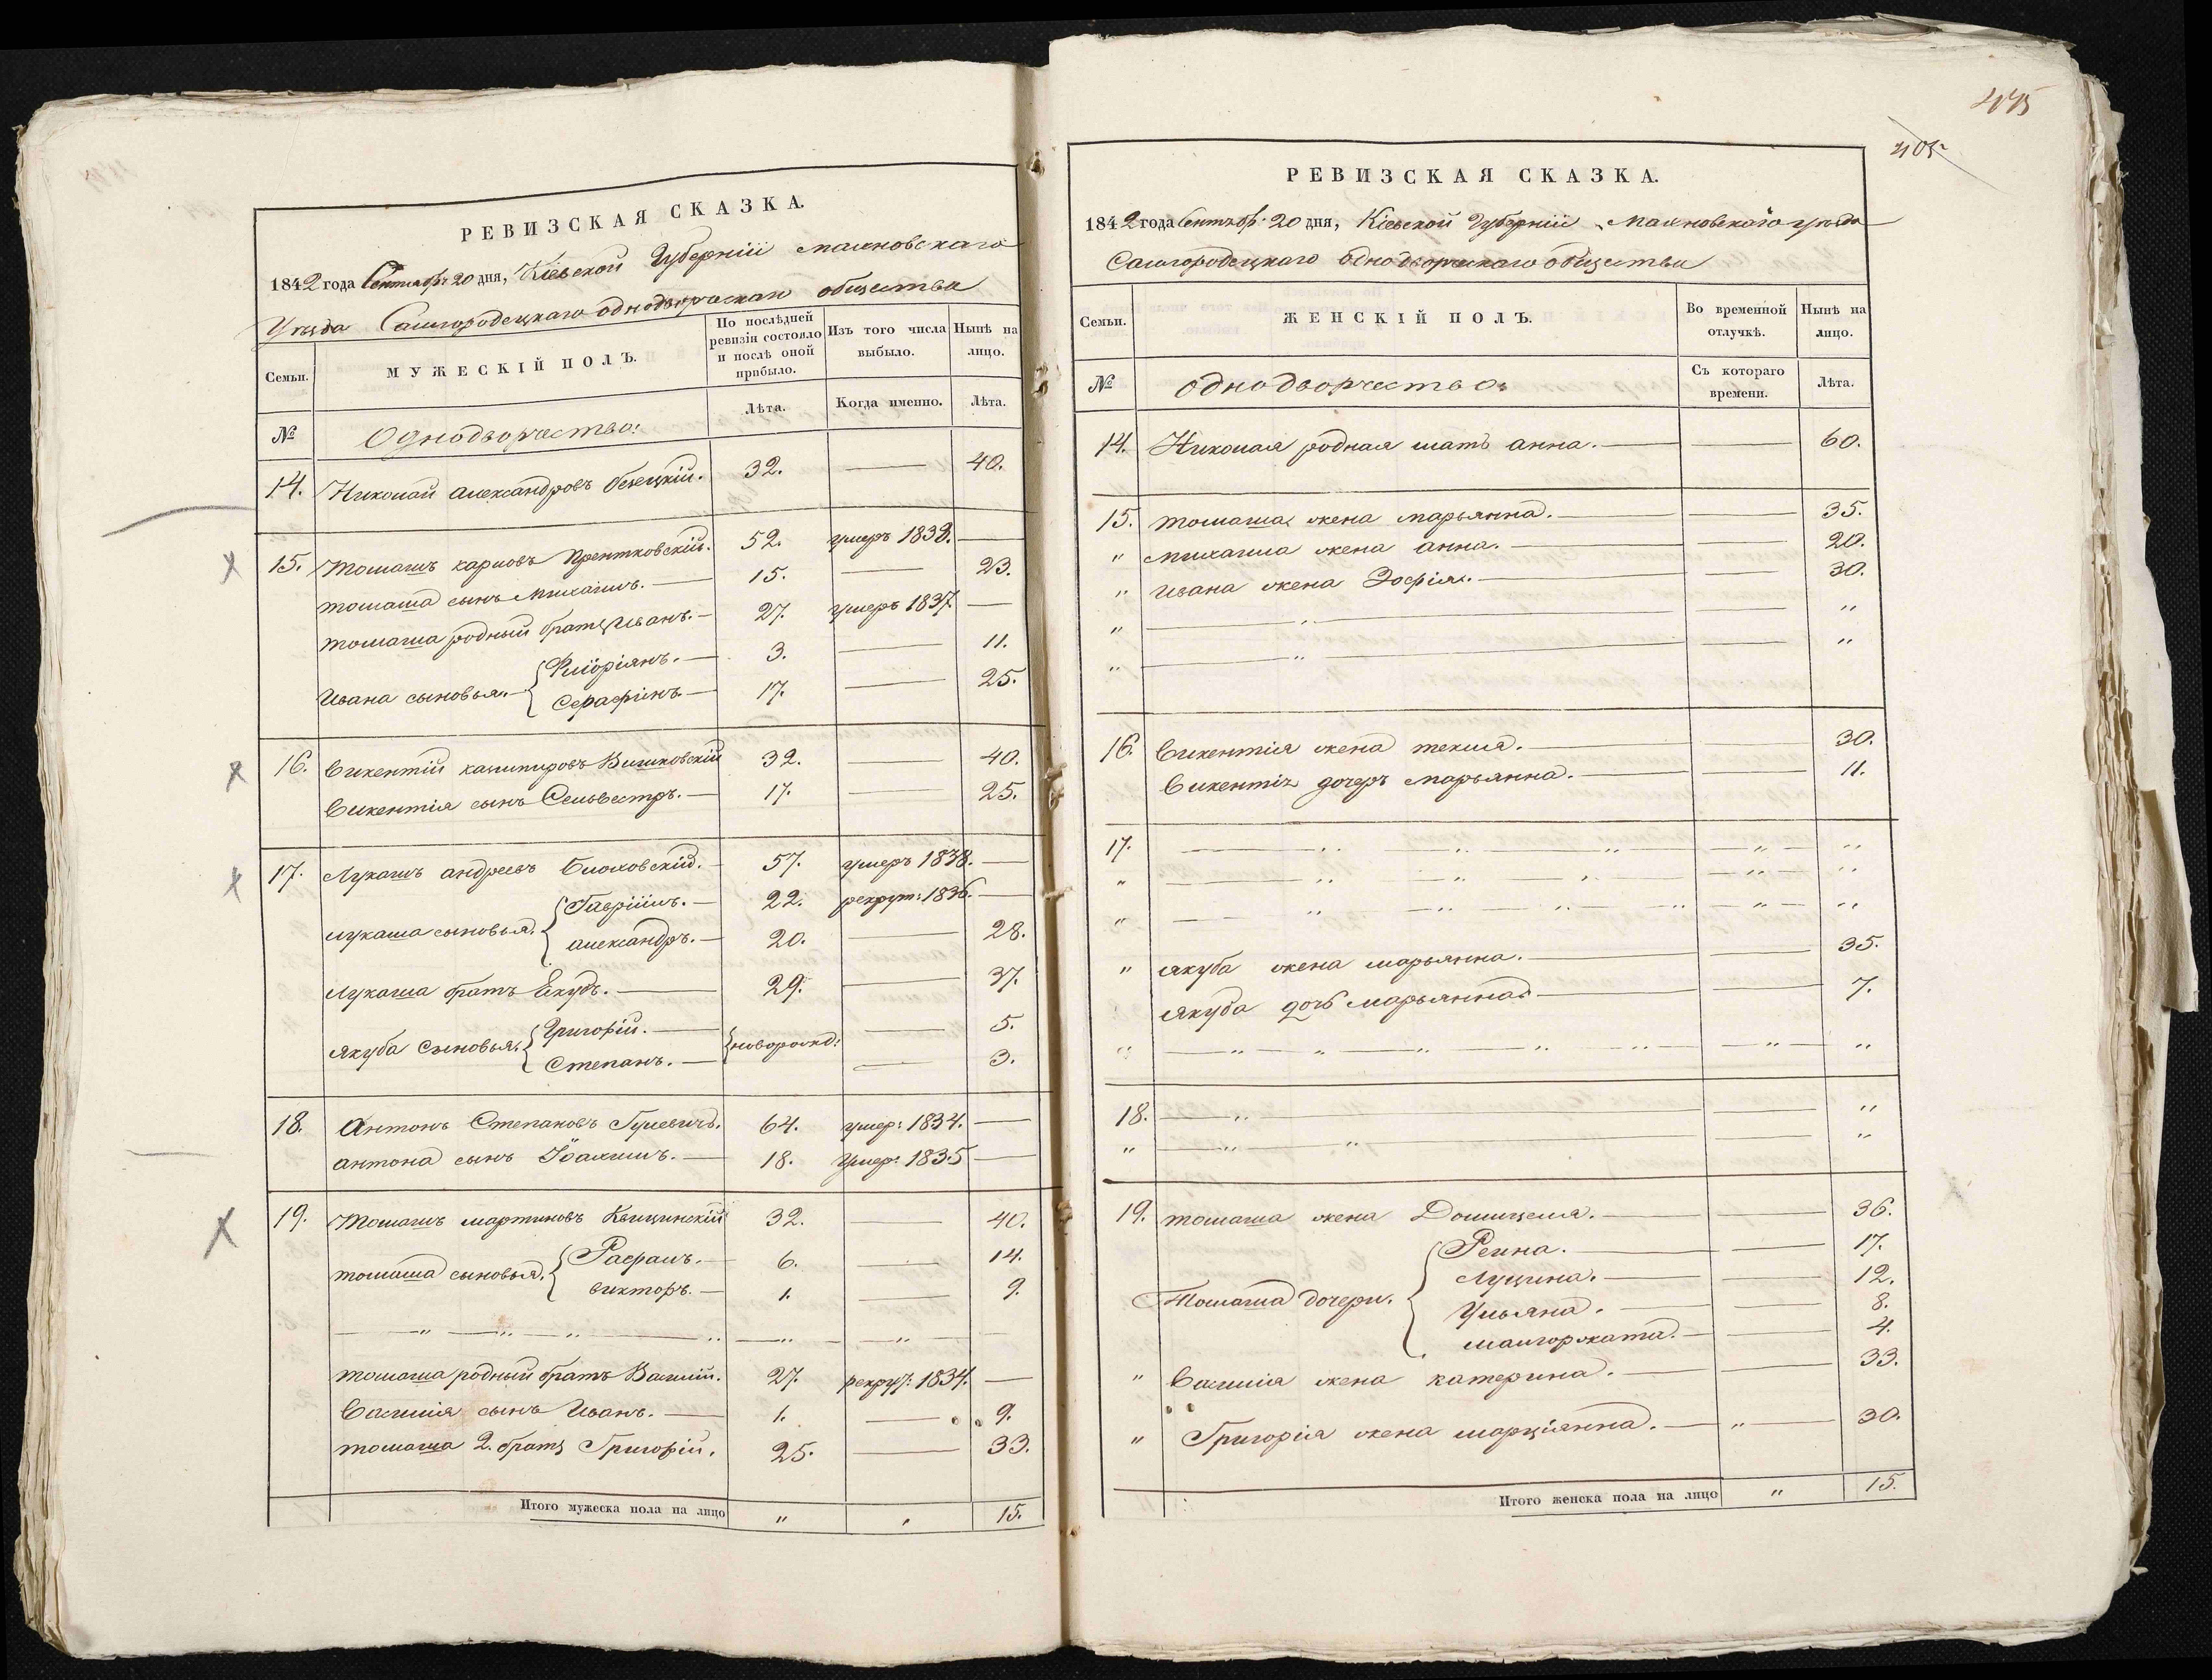 РЕВИЗСКАЯ СКАЗКА.
1842 года Сентября 20 дня, Кіевской Губерніи Махновскаго
Уѣзда Самгородецкаго однодворческаго общества
Семьи. МУЖЕСКІЙ ПОЛЪ. По послѣдней ревизіи состояло и послѣ оной прибыло. Изъ того числа выбыло. Нынѣ на лицо.
№ Однодворчество: Лѣта. Когда именно. Лѣта.
14. Николай Александровъ 32. — 40.
15. Томашъ Карповъ Прентковскій. 52. умеръ 1839. —
Томаша сынъ Михаилъ. — 15. — 23.
Томаша родный братъ Иванъ. — 27. умеръ 1837. —
Ивана сыновья. Флоріянъ. — 3. — 11.
Серафинъ. — 17. — 25.
16. Викентій Казимировъ Вишковскій 32. — 40.
Викентія сынъ Сельвестръ. — 17. — 25.
17. Лукашъ Андреевъ 57. умеръ 1838. —
Лукаша сыновья. Гавріилъ. — 22. рекрут: 1836. —
Александръ. — 20. — 28.
Лукаша братъ Екубъ. — 29. — 37.
Якуба сыновья. Григорій. — новорожд: — 5.
Степанъ. — — 3.
18. Антонъ Степановъ Гулевичъ. 64. умер: 1834. —
Антона сынъ Іоахимъ. — 18. Умер: 1835 —
19. Томашъ Мартиновъ Квицинскій 32. — 40.
Томаша сыновья. Рафалъ. — 6. — 14.
Викторъ. — 1. — 9.
— " — " — " — " — " — " —
Томаша родный братъ Василій. 27. рекрут: 1834. —
Василія сынъ Иванъ. — 1. — 9.
Томаша 2. братъ Григорій. 25. — 33.
Итого мужеска пола на лицо " " 15.
475
405
РЕВИЗСКАЯ СКАЗКА.
1842 года Сентября 20 дня, Кіевской Губерніи Махновскаго уѣзда
Самгородецкаго однодворческаго общества
Семьи. ЖЕНСКІЙ ПОЛЪ. Во временной отлучкѣ. Нынѣ на лицо.
№ Однодворчество: Съ котораго времени. Лѣта.
14. Николая родная мать Анна. — — 60.
15. Томаша жена Марьянна. — — 35.
" Михаила жена Анна. — — 20.
" Ивана жена Зофія. — — 30.
" — " — — "
" — " — — "
16. Викентія жена Текля. — — 30.
Викентія дочеръ Марьянна. — — 11.
17. — " — " — " — "
" — " — " — " — " — "
" — " — " — " — " — " — "
" Якуба жена Марьянна. — — 35.
Якуба дочь Марьянна. — — 7.
" — " — " — " — " — " — " — "
18. — " — — "
" — " — " — — "
19. Томаша жена Домицеля. — — 36.
Томаша дочери. Регина. — — 17.
Луцина. — — 12.
Ульяна. — — 8.
Малгоржата. — — 4.
" Василія жена Катерина. — — 33.
" Григорія жена Марціянна. — " — 30.
Итого женска пола на лицо " 15.